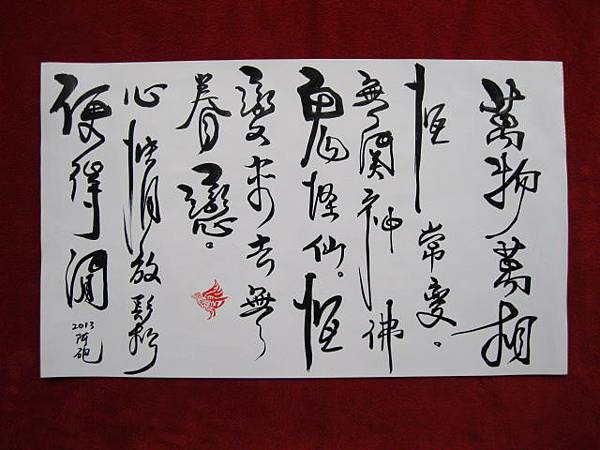 萬物萬相
恒常變。
無關神佛
鬼怪仙。恒
變來去無
眷戀。
心情放鬆
便得閒
2013
阿砲